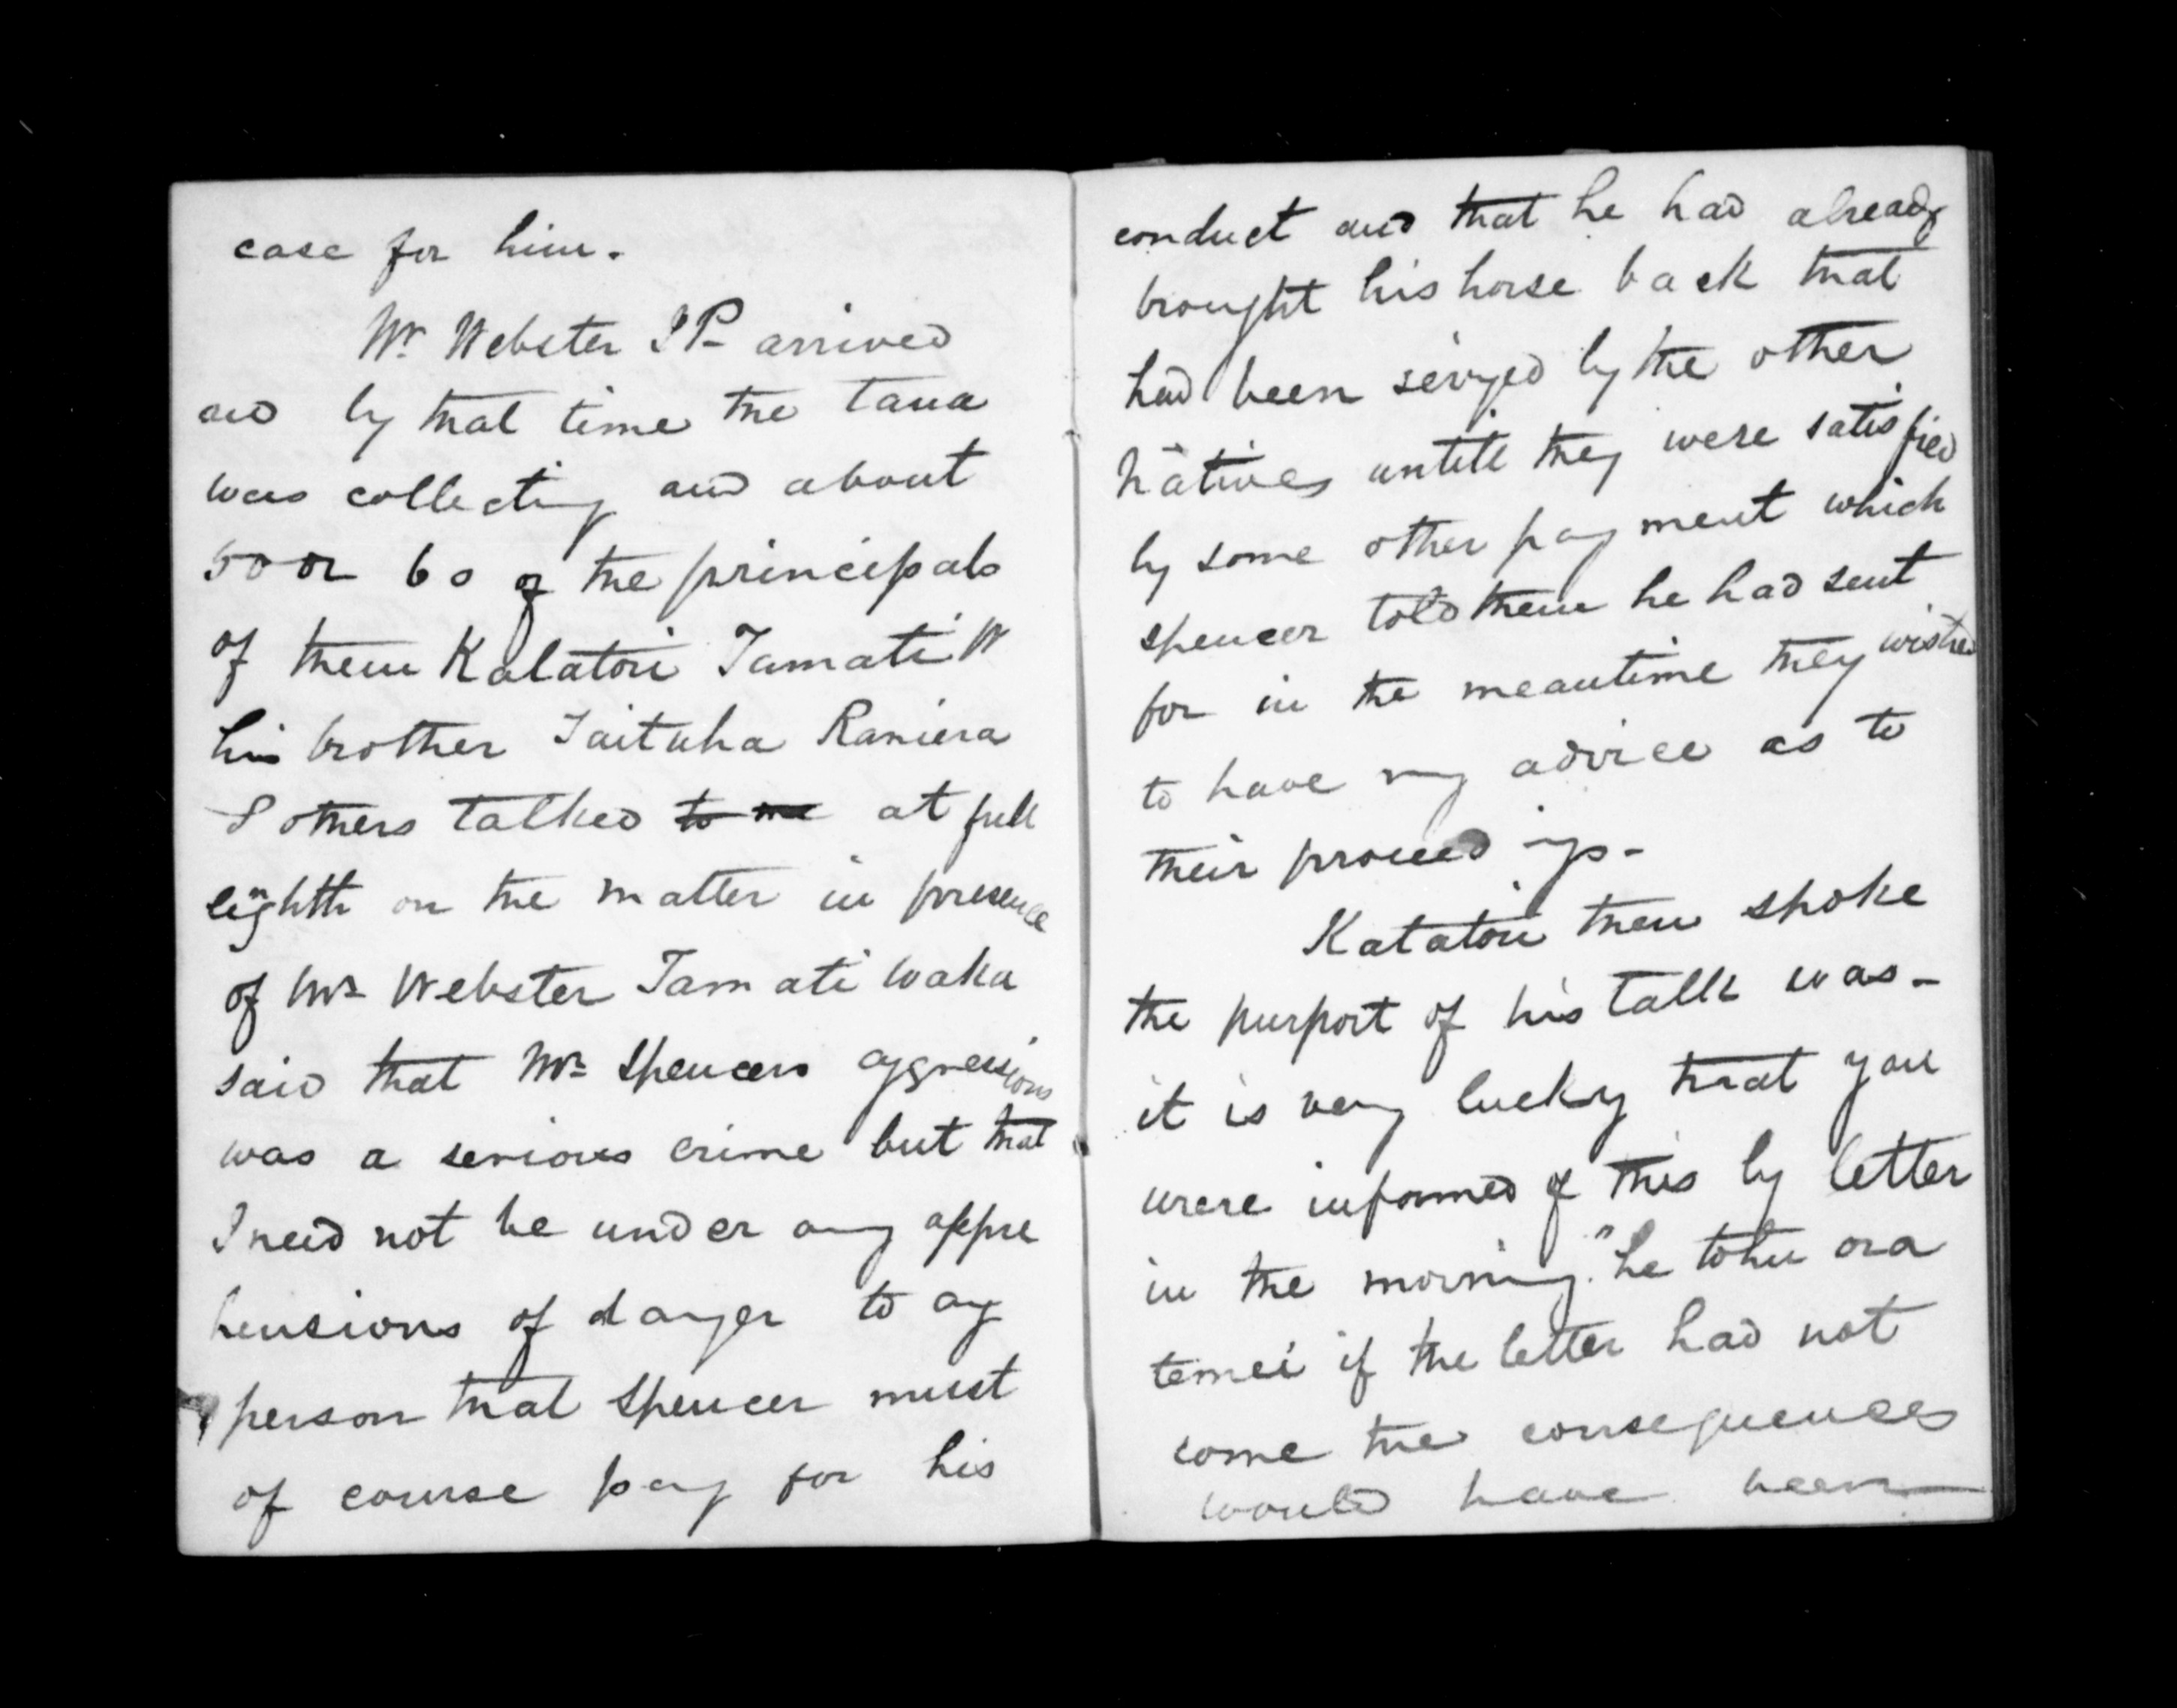 case for him.
Mr Webster JP arrived
and by that time the taua
was collecting and about
50 or 60 of the principals
of them Katatori Tamati W
his brother Taituha Raniera
& others talked to me at full
length on the matter in presence
of Mr Webster Tamati Waka
said that Mr Spencers aggressions
was a serious crime but that
I need not be under any appre
hensions of danger to any
person that Spencer must
of course pay for his
conduct and that he had already
brought his horse back that
had been seized by the other
natives untill they were satisfied
by some other payment which
Spencer told them he had sent
for in the meantime they wished
to have my advice as to
their proceedings -
Katatori then spoke
the purport of his talk was -
it is very lucky that you
were informed of this by letter
in the morning. "he tohu ora
tenei if the letter had not
come the consequences
would have been